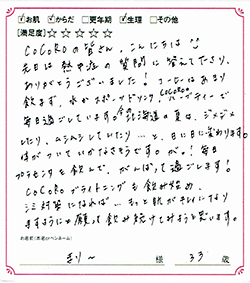 ☑お肌 ☑からだ □更年期 ☑生理 □その他
[満足度]☆☆☆☆☆
COCOROの皆さん、こんにちは
先日は熱中症の質問に答えてくださり、
ありがとうございました！コーヒーはあまり
飲まず、水かスポーツドリンク、ハーブティーで
毎日過ごしていますの。北海道の夏は、ジメジメ
したり、ムシムシしていたり…と、日に日に変わります。
体がついていかなさそうですが。！毎日
プラセンタを飲んで、がんばって過ごします！
COCOROブライトニングも飲み始め、
シミ対策になれば…もっと肌がキレイになり
ますようにと願って飲み続けてみようと思います。
お名前(本名orペンネーム)
まりー 様 33 歳